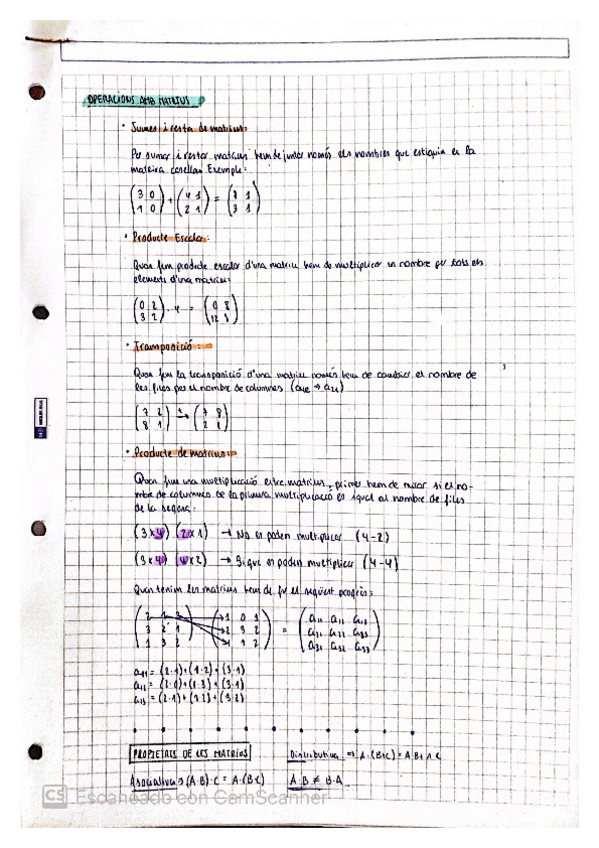 OPERACIONS AMB MATRIUS
• Sumes i resta de matrius:
Per sumar i restar matrius hem de juntar només els nombres que estiguin en la
mateixa casella. Exemple:
(3 0 / 1 0) + (4 1 / 2 1) = (7 1 / 3 1)
• Producte Escalar:
Quan fem producte escalar d'una matriu hem de multiplicar un nombre per tots els
elements d'una matriu:
(0 2 / 3 2) · 4 = (0 8 / 12 8)
• Transposició:
Quan fem la transposició d'una matriu només hem de canviar el nombre de
les files per el nombre de columnes
(7 2 / 8 1) t→ (7 8 / 2 1)
• Producte de matrius:
Quan fem una multiplicació entre matrius, primer hem de mirar si el nom-
bre de columnes de la primera multiplicació és igual al nombre de files
de la segona:
(3x4) (2x1) → No es poden multiplicar (4-2)
(3x4) (4x2) → Si que es poden multiplicar (4-4)
Quan tenim les matrius hem de fer el següent procés:
(2 1 3 / 3 2 1 / 1 3 2) (1 0 1 / 2 3 2 / 1 1 2) = (a11 a12 a13 / a21 a22 a23 / a31 a32 a33)
a11 = (2·1)+(1·2)+(3·1)
a12 = (2·0)+(1·3)+(3·1)
a13 = (2·1)+(1·2)+(3·2)
PROPIETATS DE LES MATRIUS
Distributiva ⇒ A·(B+C) = A·B + A·C
Associativa → (A·B)·C = A·(B·C)
A·B ≠ B·A
CS Escaneado con CamScanner